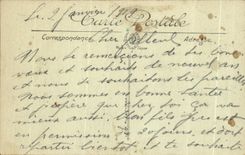 Le 2 Janvier 1919
Carte Postale
Correspondance Adresse
Cher
Nous te remercions de tes bons
vœux et souhaits de nouvel an
et nous te souhaitons les pareilles
Nous sommes en bonne santé
et j'espère que chez toi ça va
mieux aussi. Mon fils qui est
en permission 20 jours et doit
repartir bientôt, et te souhaite